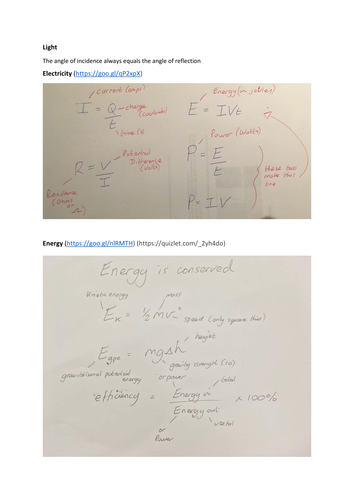 Light
The angle of incidence always equals the angle of reflection
Electricity (https://goo.gl/qP2xpX)
Current (amps)
I = Q/t
charge (coulombs)
time (s)
Energy (in joules)
E = IVt
Power (Watts)
P = E/t
these two make this one
P = IV
R = V/I
Potential Difference (Volts)
Resistance (Ohms or Ω)
Energy (https://goo.gl/nlRMTH) (https://quizlet.com/_2yh4do)
Energy is conserved
Kinetic energy
mass
Eₖ = ½mv²
speed (only square this)
height
E gpe = mgΔh
gravitational potential energy
gravity strength (10)
or power
total
efficiency = Energy in / Energy out × 100%
useful
or Power